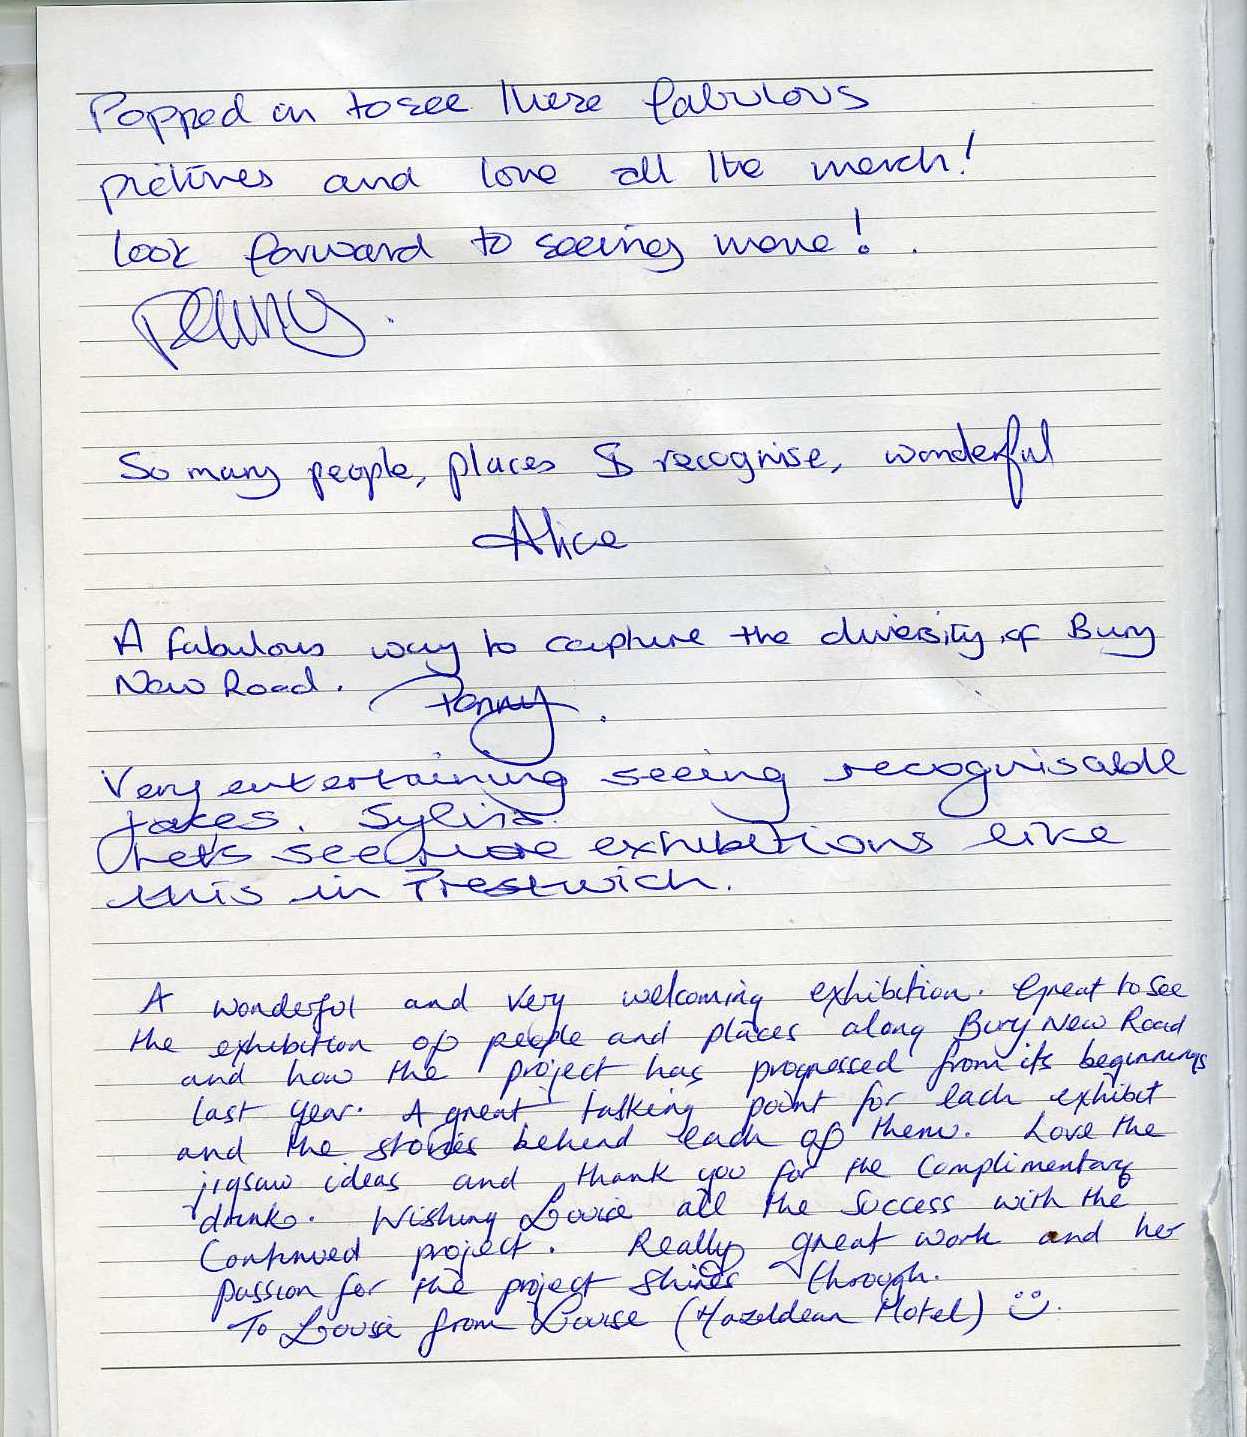 Popped in to see these fabulous
pictures and love all the merch!
look forward to seeing more!.
Penny.
So many people, places I recognise, wonderful
Alice
A fabulous way to capture the diversity of Bury
New Road. Penny.
Very entertaining seeing recognisable
faces. Sylvia.
Let's see more exhibitions like
this in Prestwich.
A wonderful and very welcoming exhibition. Great to see
the exhibition of people and places along Bury New Road
and how the project has progressed from its beginnings
last year. A great talking point for each exhibit
and the stories behind each of them. Love the
jigsaw ideas and thank you for the complimentary
drinks. Wishing Louise all the success with the
Continued project. Really great work and her
passion for the project shines through.
To Louise from Louise (Hazeldean Hotel) ☺.